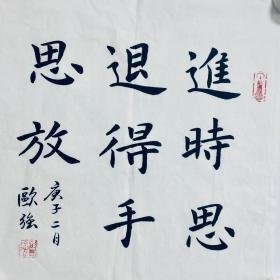 進時思
退得手
思放
庚子二月
歐强